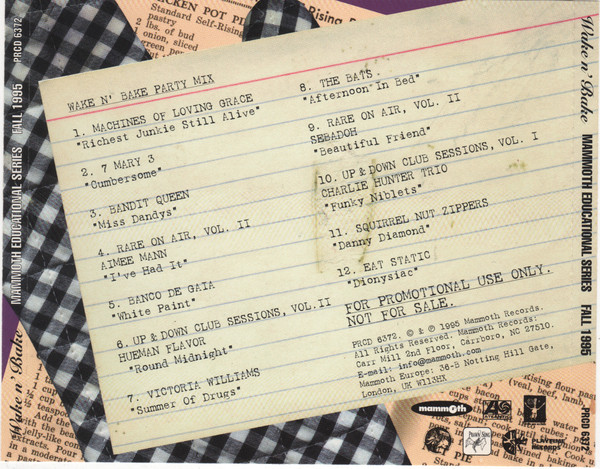 PRCD 6372
MAMMOTH EDUCATIONAL SERIES FALL 1995
Wake n' Bake
CHICKEN POT PIE
Standard Self-Rising
pastry
2 lbs. of
1 onion, sliced
WAKE N' BAKE PARTY MIX
1. MACHINES OF LOVING GRACE
"Richest Junkie Still Alive"
2. 7 MARY 3
"Cumbersome"
3. BANDIT QUEEN
"Miss Dandys"
4. RARE ON AIR, VOL. II
AIMEE MANN
"I've Had It"
5. BANCO DE GAIA
"White Paint"
6. UP & DOWN CLUB SESSIONS, VOL.II
HUEMAN FLAVOR
"Round Midnight"
7. VICTORIA WILLIAMS
"Summer Of Drugs"
8. THE BATS
"Afternoon In Bed"
9. RARE ON AIR, VOL. II
SEBADOH
"Beautiful Friend"
10. UP & DOWN CLUB SESSIONS, VOL. I
CHARLIE HUNTER TRIO
"Funky Niblets"
11. SQUIRREL NUT ZIPPERS
"Danny Diamond"
12. EAT STATIC
"Dionysiac"
FOR PROMOTIONAL USE ONLY.
NOT FOR SALE.
PRCD 6372. © & ℗ 1995 Mammoth Records.
All Rights Reserved. Mammoth Records:
Carr Mill 2nd Floor, Carrboro, NC 27510.
E-mail: info@mammoth.com
Mammoth Europe: 36-B Notting Hill Gate,
London, UK W113HX
mammoth
PIE
Wake n' Bake
MAMMOTH EDUCATIONAL SERIES FALL 1995
PRCD 6372